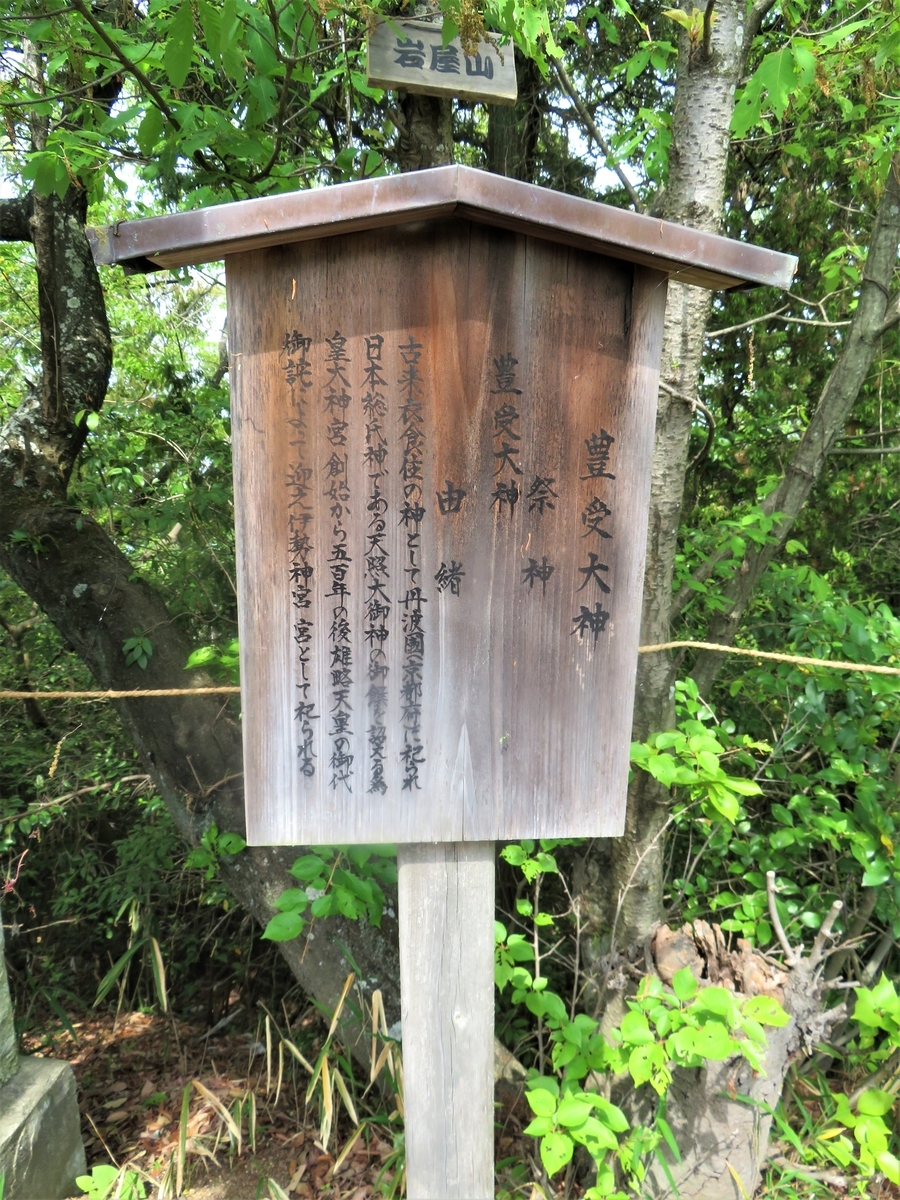 岩屋山
豊受大神
祭神
豊受大神
由緒
古来衣食住の神として丹波國(京都府)に祀られ
日本総氏神である天照大御神の御饌を調える為
皇大神宮創始から五百年の後雄略天皇の御代
御託によって迎え伊勢神宮 宮として祀られる